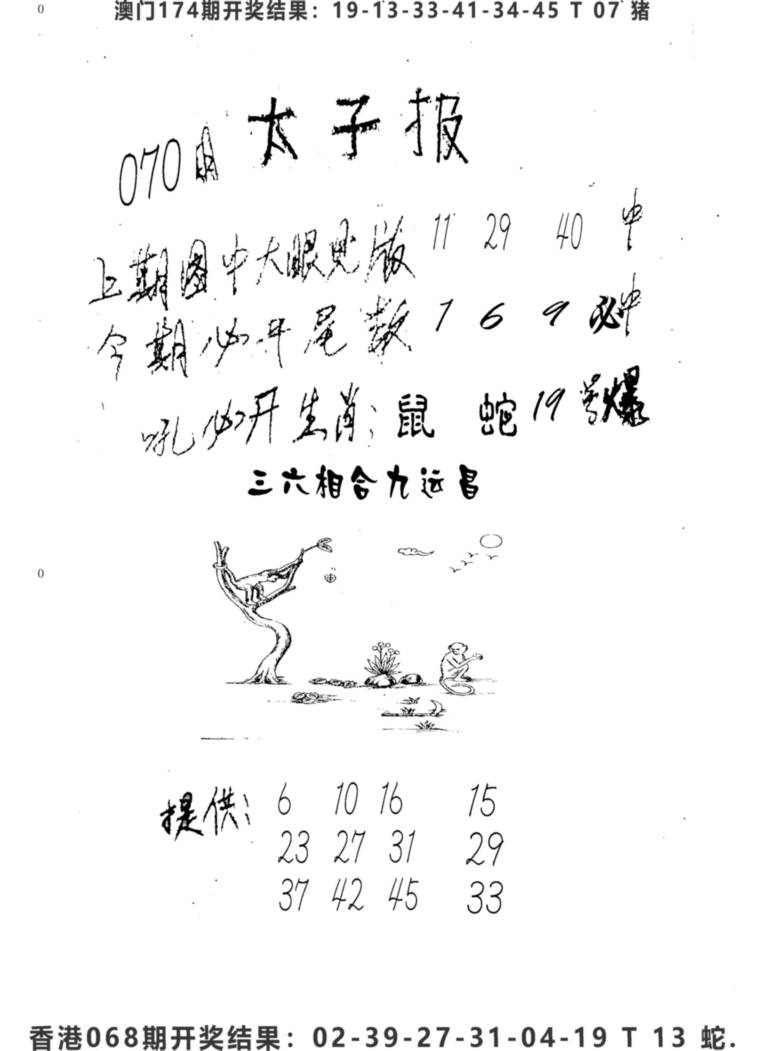 澳门174期开奖结果：19-13-33-41-34-45 T 07 猪
太子报
070期
上期图中大眼见版 11 29 40 中
今期必开尾数 1 6 9 必中
吼必开生肖：鼠 蛇 19号爆
三六相合九运昌
提供： 6 10 16 15
23 27 31 29
37 42 45 33
香港068期开奖结果：02-39-27-31-04-19 T 13 蛇.